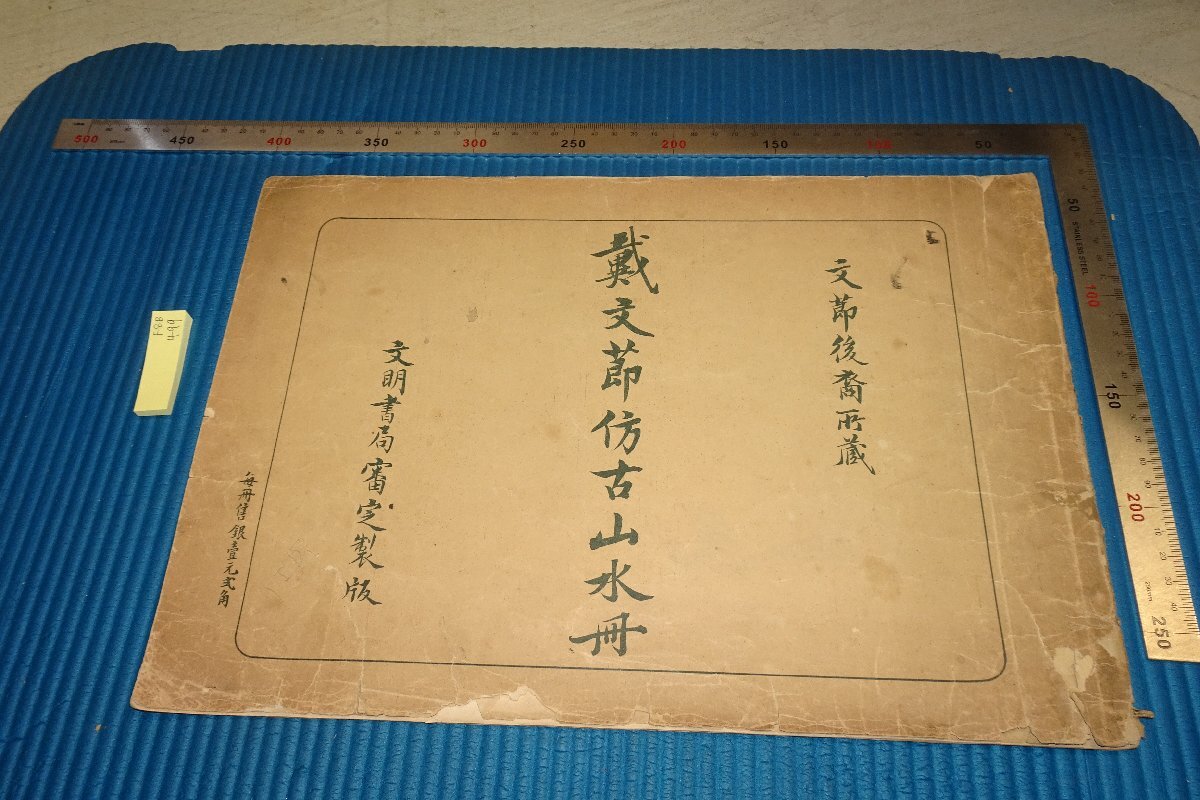 文節後裔所藏
戴文節仿古山水冊
文明書局審定製版
每冊售銀壹元弍角
500 450 400 350 300 250 200 150 100 50
50 100 150 200 250
STAINLESS STEEL